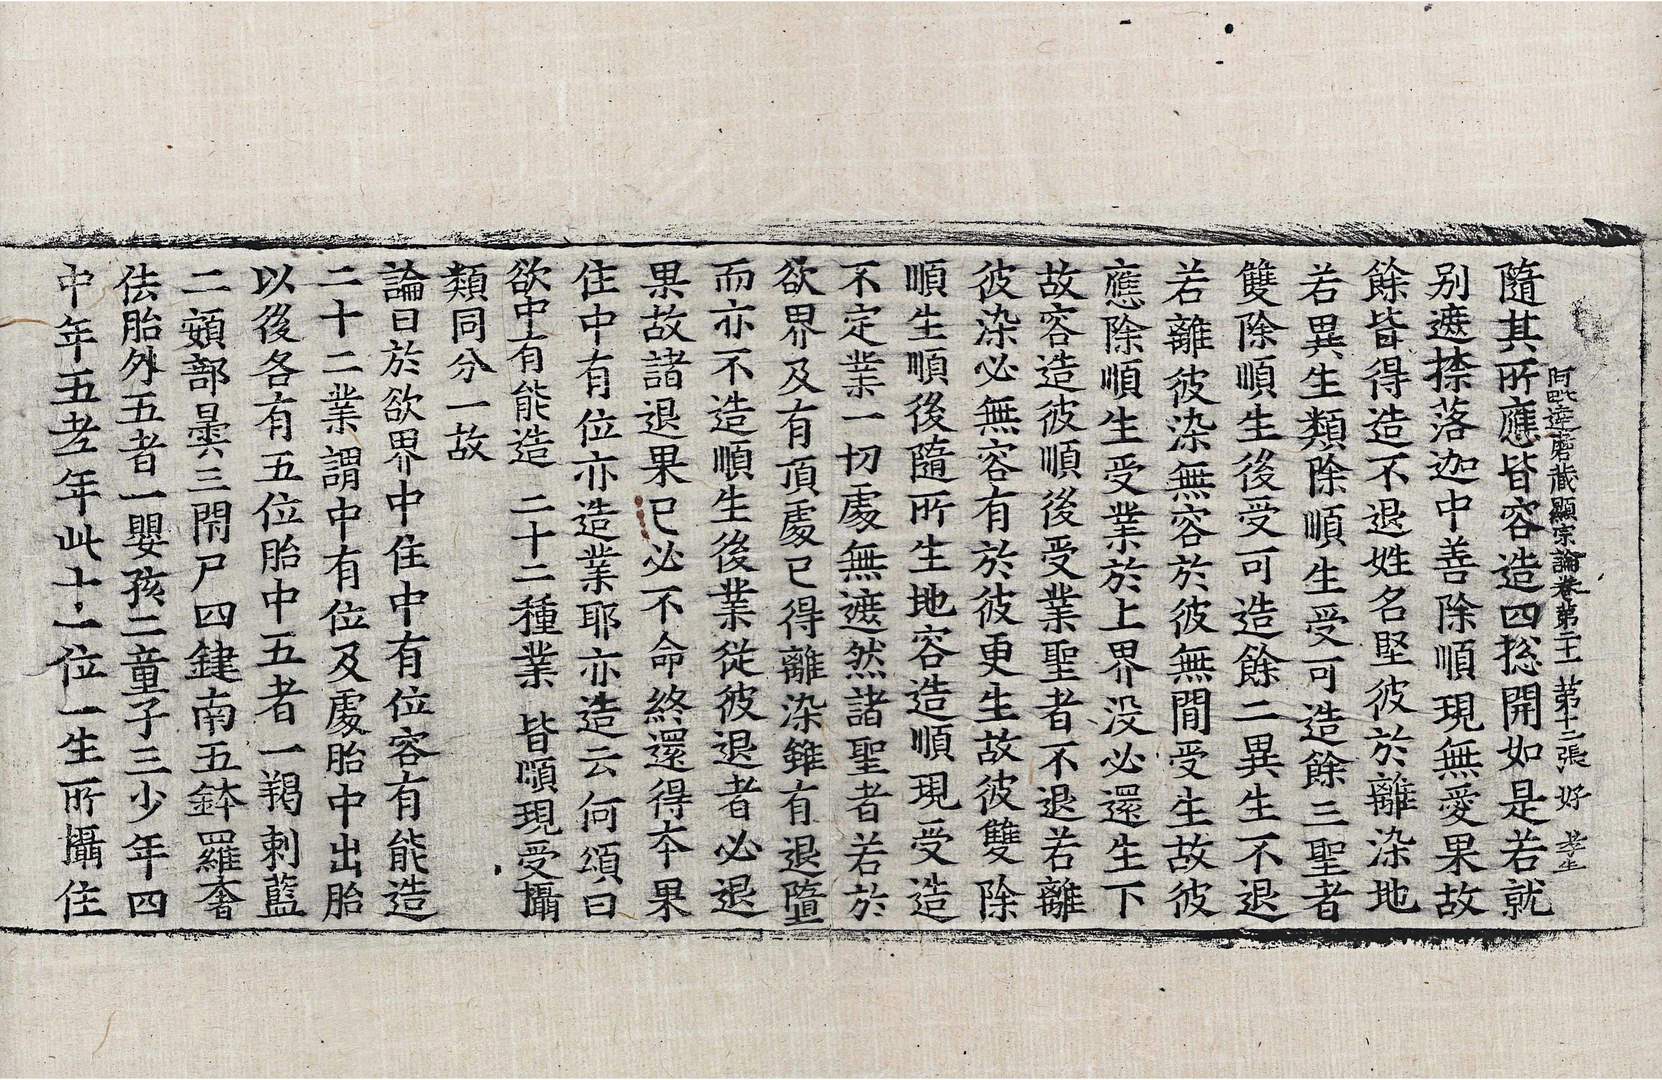 阿毗達磨藏顯宗論卷第二十二 第十二張 好 孝生
隨其所應皆容造四揔開如是若就
別遮㮈落迦中善除順現無愛果故
餘皆得造不退姓名堅彼於離染地
若異生類除順生受可造餘三聖者
雙除順生後受可造餘二異生不退
若離彼染無容於彼無閒受生故彼
應除順生受業於上界没必還生下
故容造彼順後受業聖者不退若離
彼染必無容有於彼更生故彼雙除
順生順後隨所生地容造順現受造
不定業一切處無遮然諸聖者若於
欲界及有頂處已得離染雖有退墮
而亦不造順生後業從彼退者必退
果故諸退果已必不命終還得本果
住中有位亦造業耶亦造云何頌曰
欲中有能造 二十二種業 皆順現受攝
類同分一故
論曰於欲界中住中有位容有能造
二十二業謂中有位及處胎中出胎
以後各有五位胎中五者一羯剌藍
二頞部曇三閇尸四鍵南五鉢羅奢
佉胎外五者一嬰孩二童子三少年四
中年五老年此十一位一生所攝住